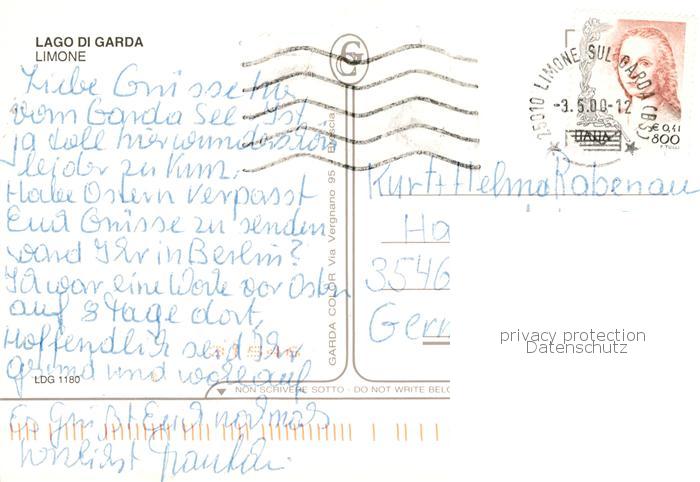 LAGO DI GARDA
LIMONE
Liebe Grüsse hier
vom Garda See Ist
ja toll hier wunderschön
leider zu kurz.
Habe Ostern verpasst
Euch Grüsse zu senden
ward Ihr in Berlin?
Ich war eine Woche vor Ostern
auf 8 Tage dort,
Hoffendlich seid Ihr
Gesund und wohlauf
LDG 1180
Es Grüßt Euch nochmals
herzlichst
GARDA COLOR Via Vergnano 95 Brescia
NON SCRIVERE SOTTO - DO NOT WRITE BELO
G
25010 LIMONE SUL GARDA (BS)
-3.5.00-12
ITALIA
€ 0,41
800
Kurt + Helma Rabenau
Ha
3546
Germ
privacy protection
Datenschutz